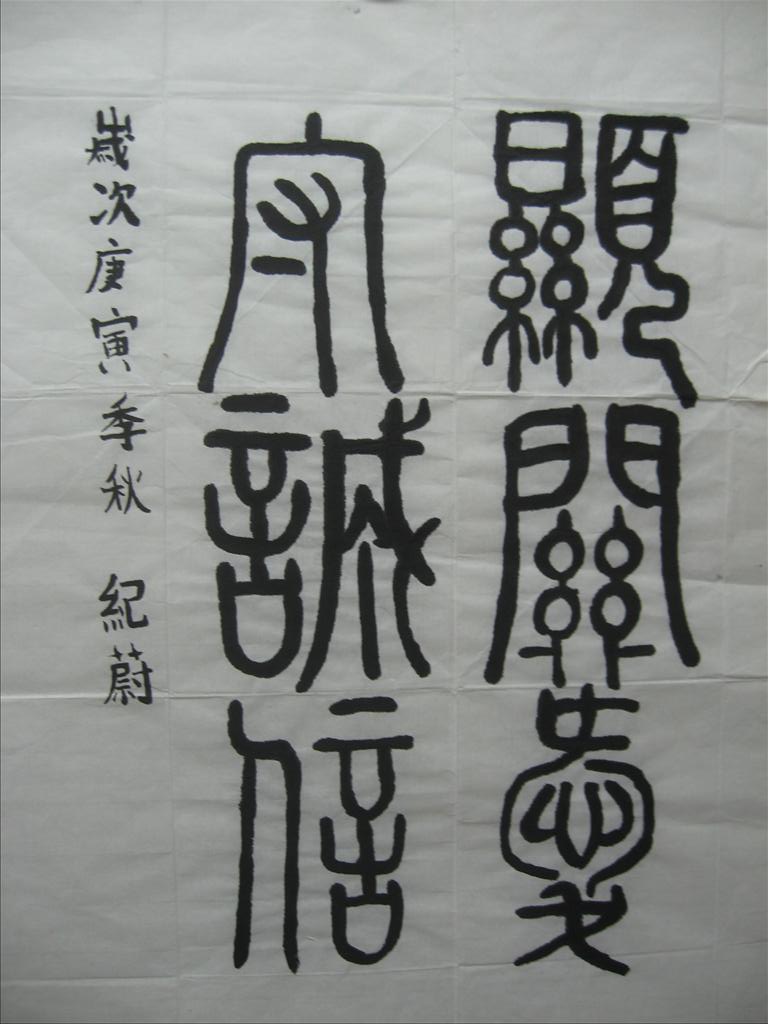 顯關愛
守誠信
歲次庚寅季秋 紀蔚